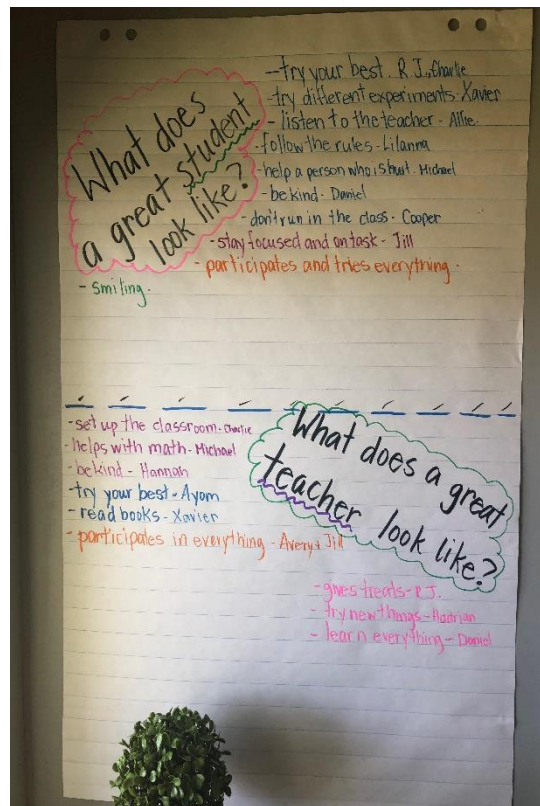 What does
a great student
look like?
- try your best. RJ., Charlie
- try different experiments - Xavier
- listen to the teacher - Allie.
- follow the rules - Lilanna
- help a person who is hurt - Michael
- be kind - Daniel
- don't run in the class - Cooper
- stay focused and on task - Jill
- participates and tries everything -
- smiling -
What does a great
teacher look like?
- set up the classroom - Charlie
- helps with math - Michael
- be kind - Hannah
- try your best - Ayom
- read books - Xavier
- participates in everything - Avery + Jill
- gives treats - RJ.
- try new things - Hadrian
- learn everything - Daniel